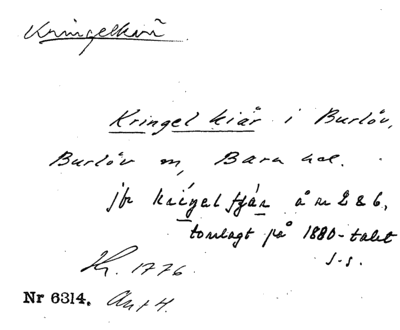 Kringelkärr
Kringel kiär i Burlöv,
Burlöv sn, Bara hd.
jfr kríngel tjár å nr 2 & 6,
torrlagt på 1880-talet
J-s.
Kr. 1776
Nr 6314. Ant 4.